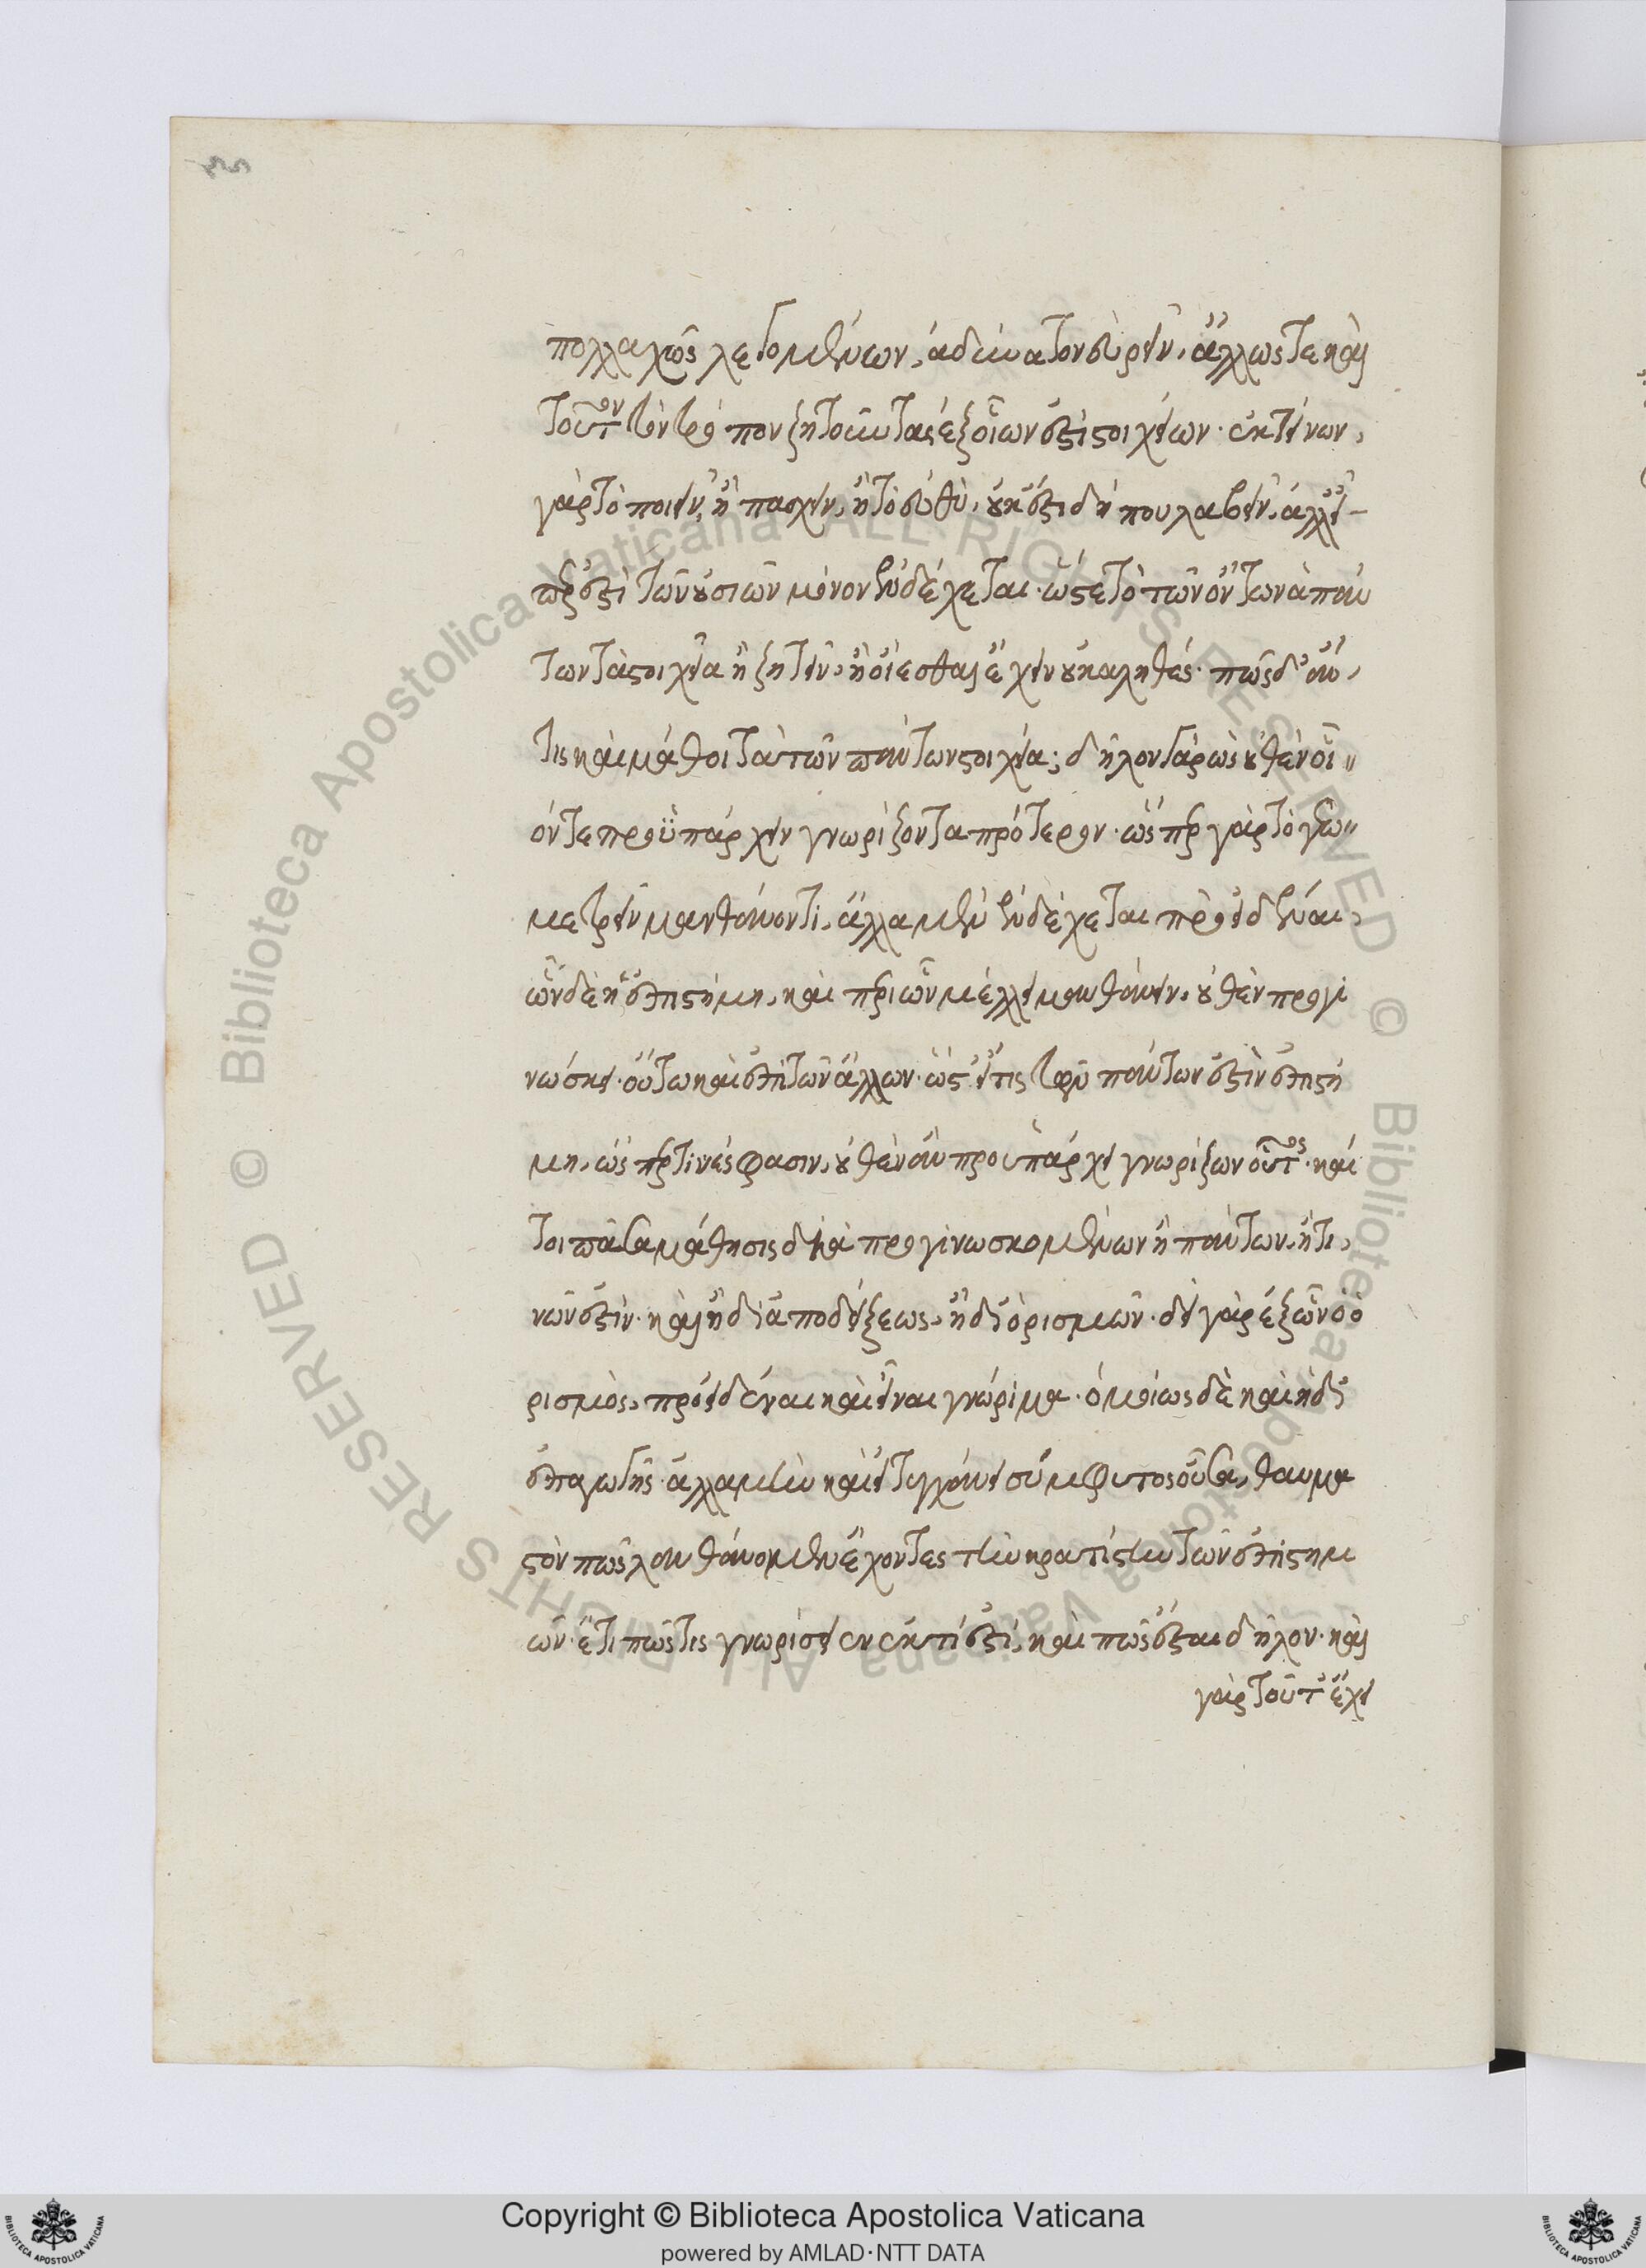 πολλαχῶς λεγομένων, ἀδύνατον εὑρεῖν. ἄλλως τε καὶ
τοῦτον τὸν τρόπον ζητοῦντας ἐξ οἵων ἐστὶ στοιχείων. ἐκ τίνων,
γὰρ τὸ ποιεῖν, ἢ πασχειν, ἢ τὸ εὐθὺ, οὐκ ἔστι δήπου λαβεῖν, ἀλλ' εἴ-
περ ἐστὶ τῶν οὐσιῶν μόνον ἐνδέχεται. ὥστε τὸ τῶν ὄντων ἁπάν
των τὰ στοιχεῖα ἢ ζητεῖν, ἢ οἴεσθαι ἔχειν οὐκ ἀληθές. πῶς δ' ἄν,
τις καὶ μάθοι τὰ τῶν πάντων στοιχεῖα; δῆλον γὰρ ὡς οὐθὲν οἷ
όν τε προϋπάρχειν γνωρίζοντα πρότερον. ὥσπερ γὰρ τὸ γεω
μετρεῖν μανθάνοντι, ἄλλα μὲν ἐνδέχεται προειδέναι,
ὧν δὲ ἡ ἐπιστήμη, καὶ περὶ ὧν μέλλει μανθάνειν, οὐθὲν προγι
νώσκει. οὕτω καὶ ἐπὶ τῶν ἄλλων. ὥστ' εἴ τις τῶν πάντων ἐστὶν ἐπιστή
μη, ὥς περ τινές φασιν, οὐθὲν ἂν προυπάρχει γνωρίζων οὗτος. καί
τοι πᾶσα μάθησις διὰ προγινωσκομένων ἢ πάντων, ἢ τι,
νῶν ἐστὶν. καὶ ἢ δι' ἀποδείξεως, ἢ δι' ὁρισμῶν. δεῖ γὰρ ἐξ ὧν ὁ ὁ
ρισμὸς, προειδέναι καὶ εἶναι γνώριμα. ὁμοίως δὲ καὶ ἡ δι'
ἐπαγωγῆς. ἀλλα μὴν καὶ εἰ τυγχάνει σύμφυτος οὖσα, θαυμα
στὸν πῶς λανθάνομεν ἔχοντες τὴν κρατίστην τῶν ἐπιστημ
ῶν. ἔτι πῶς τις γνωρίσει ἐν ἐκ τί ἐστὶ, καὶ πῶς ἔσται δῆλον. καὶ
γὰρ τοῦτ' ἔχει
Copyright © Biblioteca Apostolica Vaticana
powered by AMLAD·NTT DATA